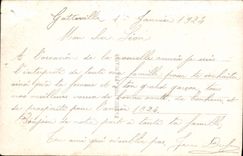 Gatteville 1er Janvier 1924
Mon cher Léon
A l'occasion de la nouvelle année je suis
l'interprète de toute ma famille pour te souhaiter
ainsi qu'à ta femme et à ton grand garçon, tous
nos meilleurs vœux de bonne santé, de bonheur et
de prospérité pour l'année 1924.
de notre part à toute ta famille,
Ton ami qui n'oublie pas